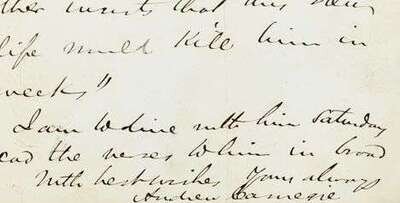 ther insists that this new
life would Kill him in
weeks"
I am to dine with him Saturday
ead the verses to him in broad
With best wishes Yours always
Andrew Carnegie